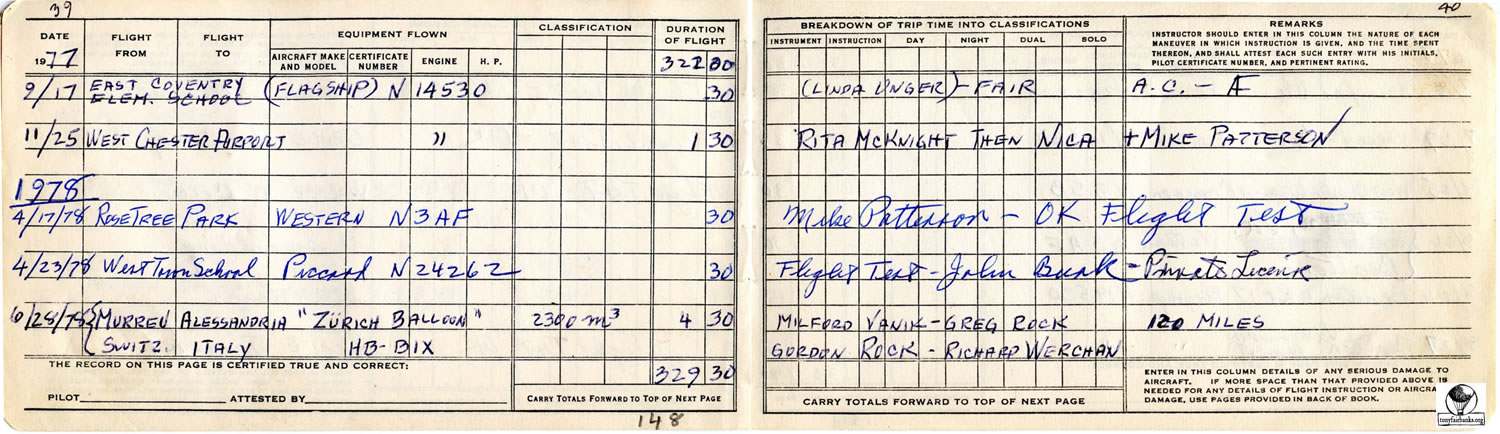 39
DATE
1977
FLIGHT FROM
FLIGHT TO
EQUIPMENT FLOWN
AIRCRAFT MAKE AND MODEL
CERTIFICATE NUMBER
ENGINE
H. P.
CLASSIFICATION
DURATION OF FLIGHT
322 30
9/17 EAST COVENTRY ELEM. SCHOOL (FLAGSHIP) N 14530 30
11/25 WEST CHESTER AIRPORT " 1 30
1978
4/17/78 ROSETREE PARK WESTERN N3AF 30
4/23/78 WestTown School Piccard N24262 30
6/28/78 { MURREN ALESSANDRIA "ZÜRICH BALLOON" 2300 m³ 4 30
SWITZ. ITALY HB-BIX
THE RECORD ON THIS PAGE IS CERTIFIED TRUE AND CORRECT:
329 30
PILOT ATTESTED BY
CARRY TOTALS FORWARD TO TOP OF NEXT PAGE
148
40
BREAKDOWN OF TRIP TIME INTO CLASSIFICATIONS
INSTRUMENT INSTRUCTION DAY NIGHT DUAL SOLO
REMARKS
INSTRUCTOR SHOULD ENTER IN THIS COLUMN THE NATURE OF EACH
MANEUVER IN WHICH INSTRUCTION IS GIVEN, AND THE TIME SPENT
THEREON, AND SHALL ATTEST EACH SUCH ENTRY WITH HIS INITIALS,
PILOT CERTIFICATE NUMBER, AND PERTINENT RATING.
(LINDA UNGER) - FAIR A.C. - AF
RITA MCKNIGHT THEN NICA + MIKE PATTERSON
Mike Patterson - OK Flight Test
Flight Test - John Burk - Private License
MILFORD VANIK - GREG ROCK 120 MILES
GORDON ROCK - RICHARD WERCHAN
CARRY TOTALS FORWARD TO TOP OF NEXT PAGE
ENTER IN THIS COLUMN DETAILS OF ANY SERIOUS DAMAGE TO
AIRCRAFT. IF MORE SPACE THAN THAT PROVIDED ABOVE IS
NEEDED FOR ANY DETAILS OF FLIGHT INSTRUCTION OR AIRCRAFT
DAMAGE, USE PAGES PROVIDED IN BACK OF BOOK.
tonyfairbanks.org